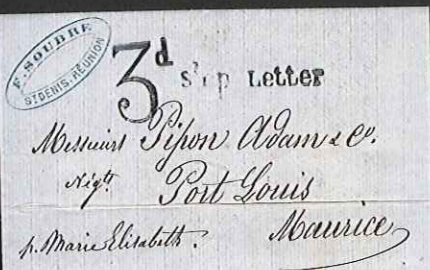 F. SOUBRE
ST DENIS. RÉUNION
3d
Ship Letter
Messieurs Pipon Adam & Co.
Négts
Port Louis
Maurice
p. Marie Elisabeth.